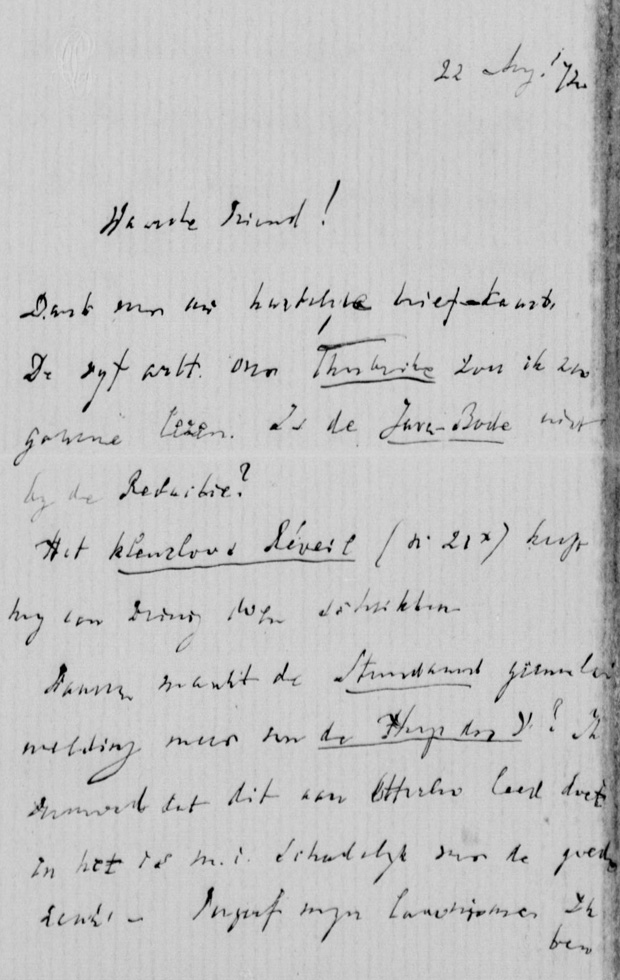 22 Aug. '72.
Waarde Vriend!
Dank voor uw hartelijke briefkaart.
De vyf artt. over zou ik zoo
gaarne lezen. Is de Java-Bode niet
by de Redactie?
Het kleurloos Réveil (di 21x) heeft
my een doen schrikken
Waarom maakt de Standaard geenerlei
melding meer van de ? Ik
vermoed dat dit aan Otterloo leed doet
en het is m.i. schadelyk voor de goede
zaak. Vergeef myn Ik
ben